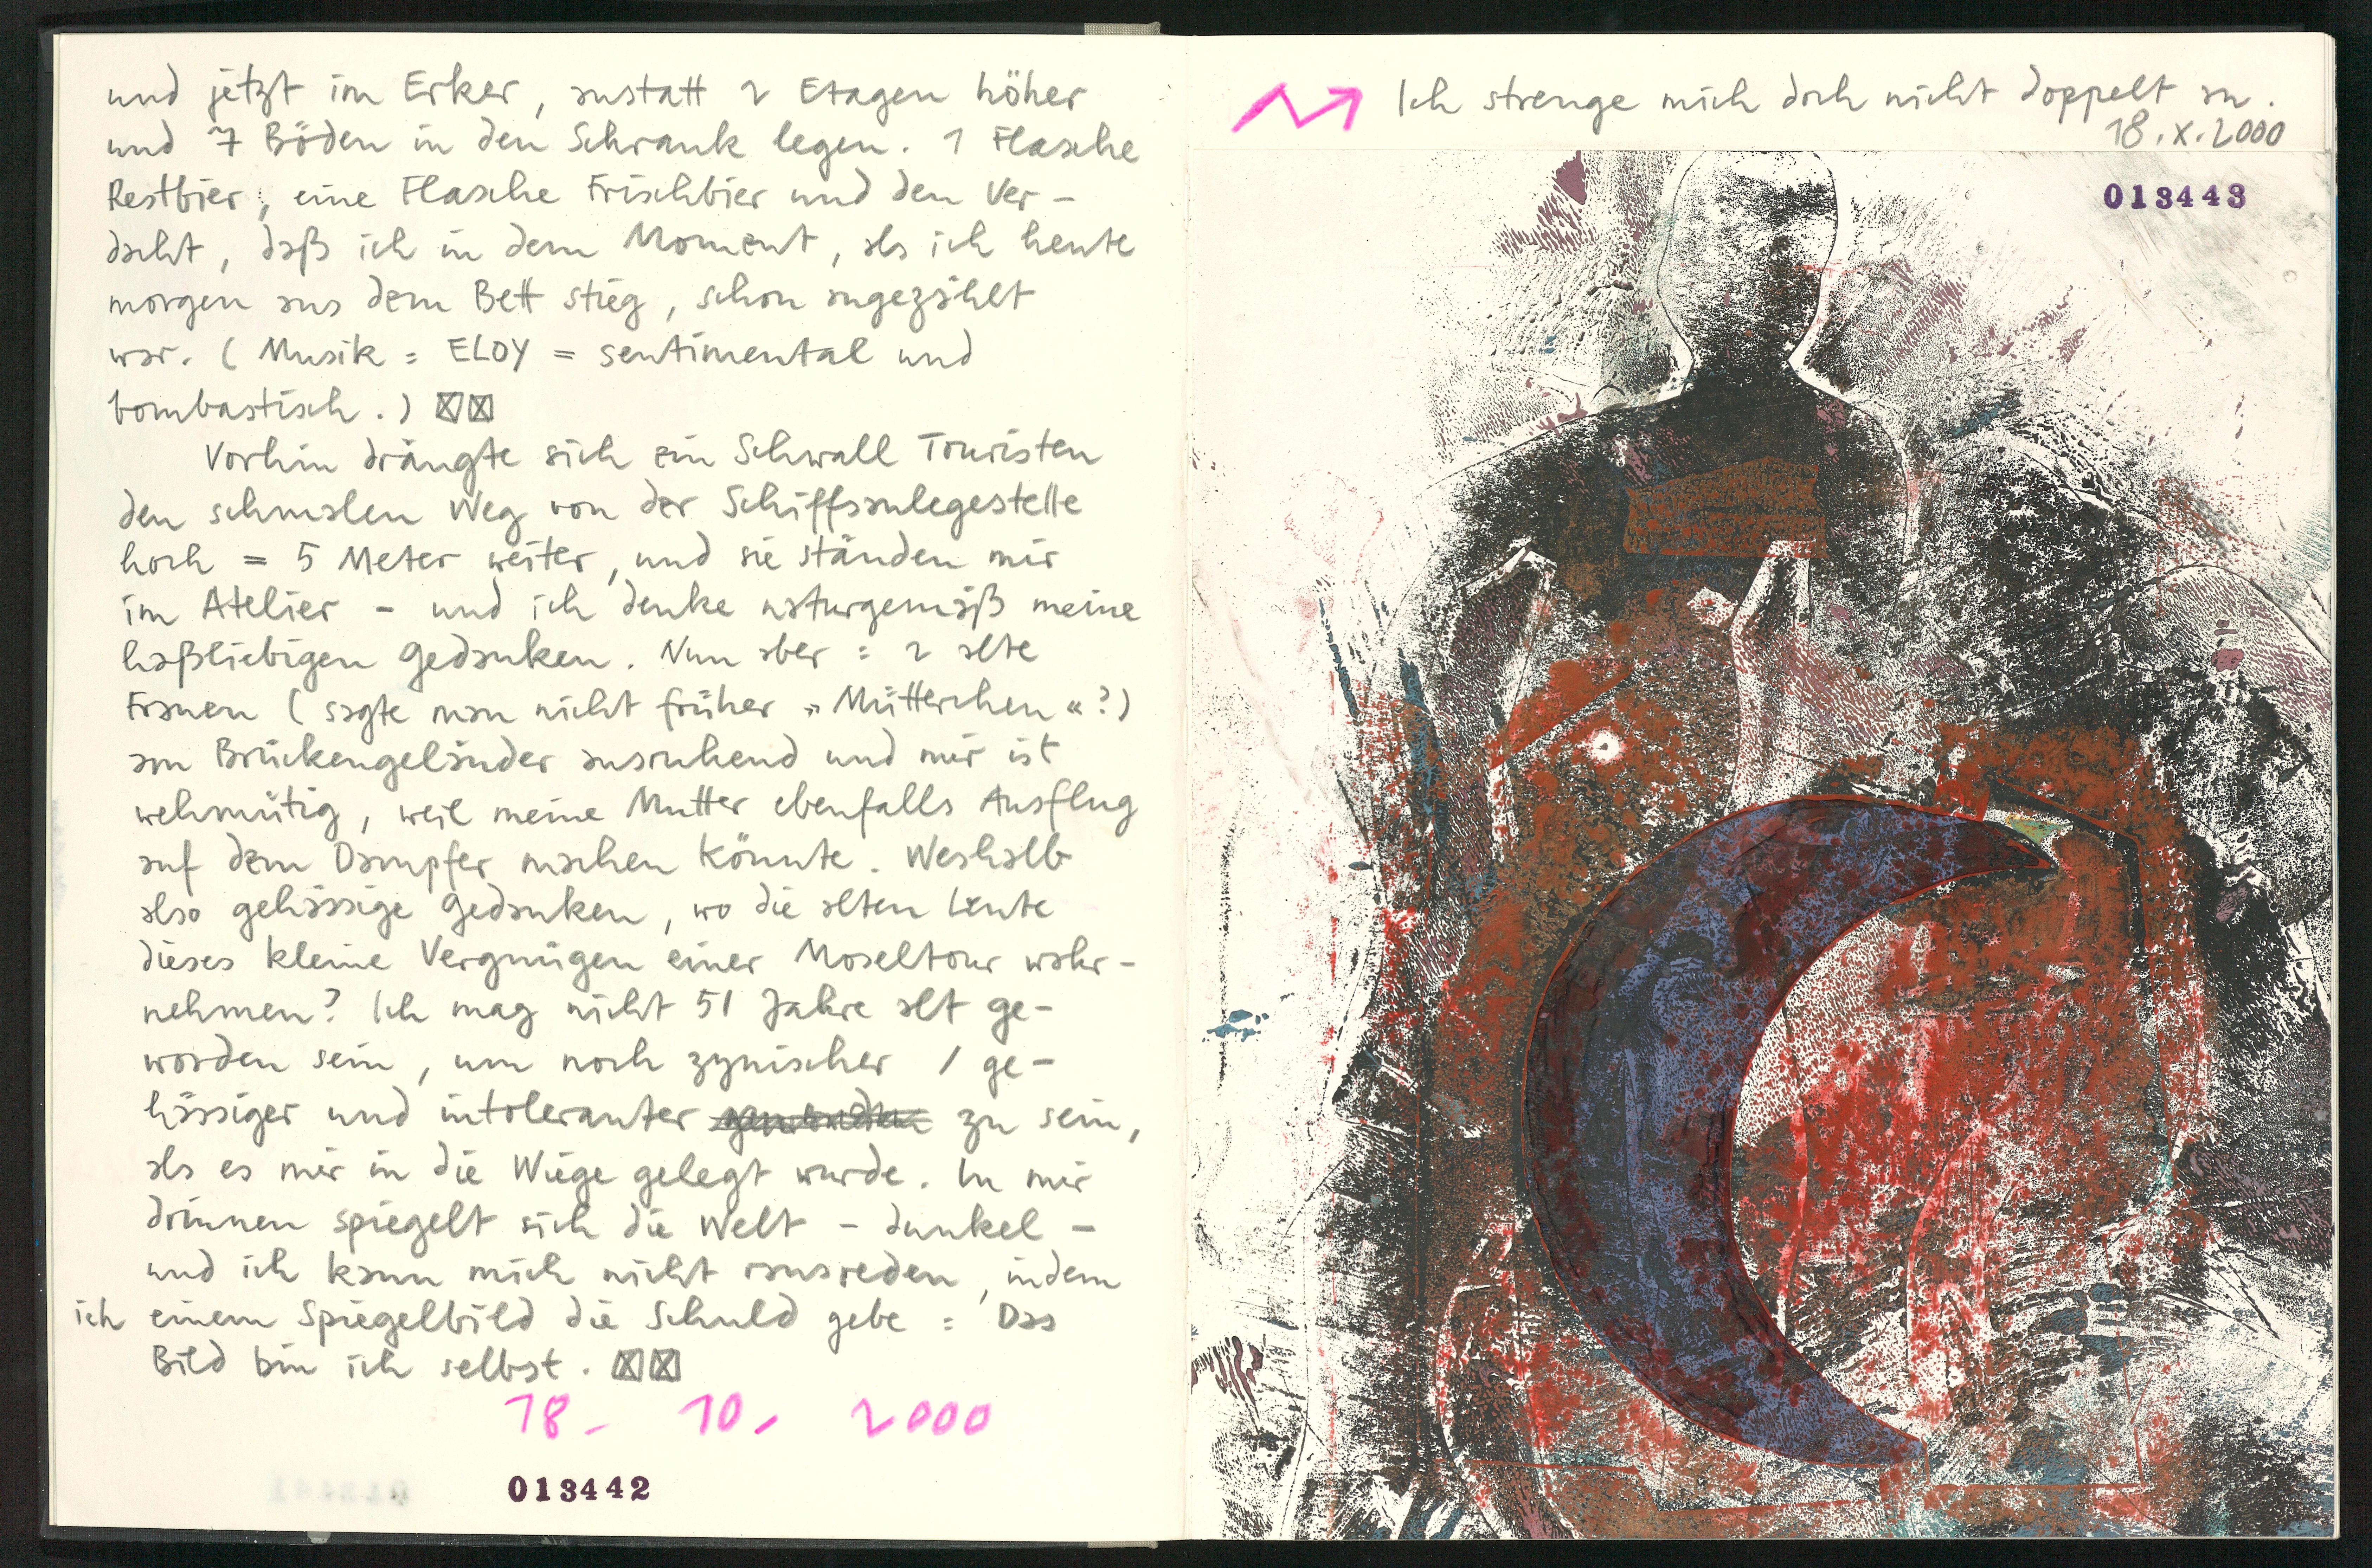 und jetzt im Erker, anstatt 2 Etagen höher
und 7 Böden in den Schrank legen. 1 Flasche
Restbier, eine Flasche Frischbier und den Ver-
dacht, daß ich in dem Moment, als ich heute
morgen aus dem Bett stieg, schon angezählt
war. (Musik = ELOY = sentimental und
bombastisch.) ☒☒
Vorhin drängte sich ein Schwall Touristen
den schmalen Weg von der Schiffsanlegestelle
hoch = 5 Meter weiter, und sie ständen mir
im Atelier - und ich denke naturgemäß meine
haßliebigen Gedanken. Nun aber = 2 alte
Frauen (sagte man nicht früher »Mütterchen«?)
am Brückengeländer ausruhend und mir ist
wehmütig, weil meine Mutter ebenfalls Ausflug
auf dem Dampfer machen könnte. Weshalb
also gehässige Gedanken, wo die alten Leute
dieses kleine Vergnügen einer Moseltour wahr-
nehmen? Ich mag nicht 51 Jahre alt ge-
worden sein, um noch zynischer / ge-
hässiger und intoleranter zu sein,
als es mir in die Wiege gelegt wurde. In mir
drinnen spiegelt sich die Welt - dunkel -
und ich kann mich nicht rausreden, indem
ich einem Spiegelbild die Schuld gebe = Das
Bild bin ich selbst. ☒☒
18. 10. 2000
013442
Ich strenge mich doch nicht doppelt an.
18.X.2000
013443